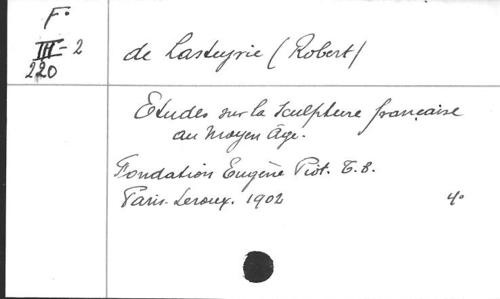 F°
III-2
220
de Lasteyrie (Robert)
Etudes sur la sculpture française
au Moyen Âge.
Fondation Eugène Piot. T.8.
Paris. Leroux. 1902 4°